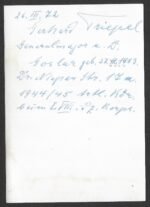 26. III. 72
Gerhard Triepel
Generalmajor a. D.
Goslar, geb.
Dr. Nieper Str. 17a
1944/45 Artl. Kdr.
beim LVIII. Pz. Korps.